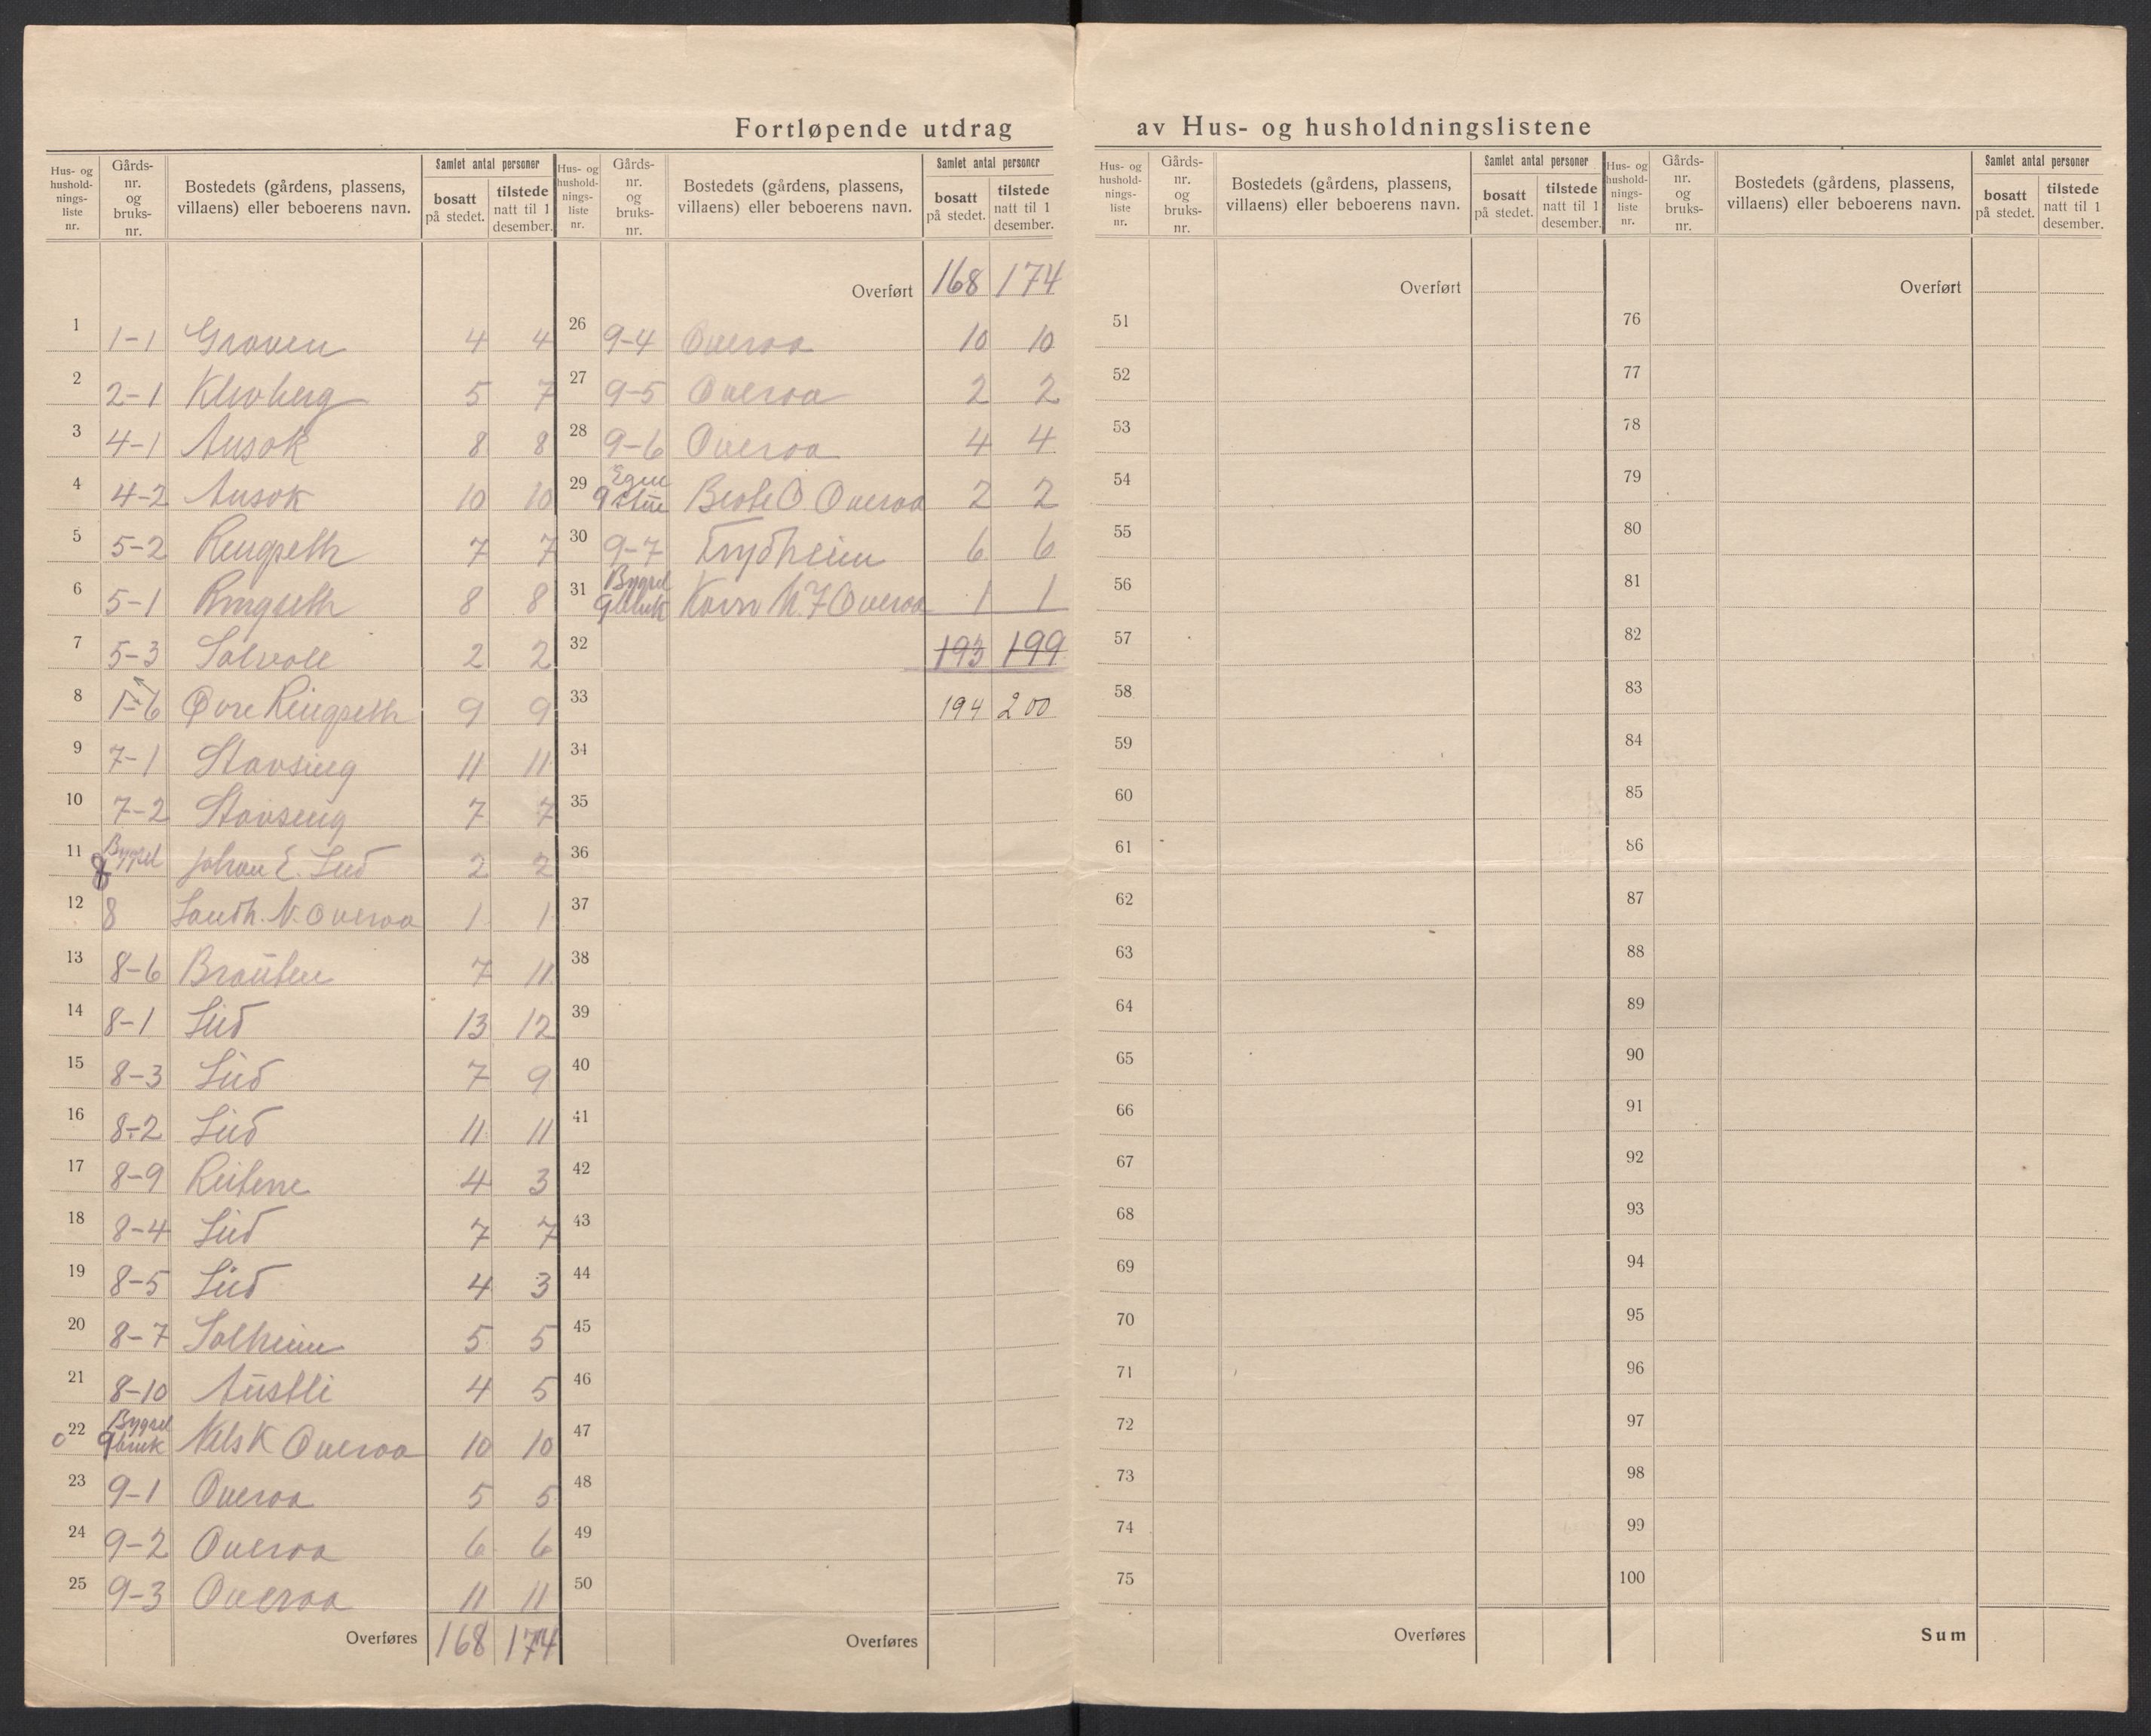 Fortløpende utdrag av Hus- og husholdningslistene
Hus- og hushold-nings-liste nr. | Gårds-nr. og bruks-nr. | Bostedets (gårdens, plassens, villaens) eller beboerens navn. | Samlet antal personer | bosatt på stedet. | tilstede natt til 1 desember.
1 1-1 Graven 4 4
2 2-1 Klevberg 5 7
3 4-1 Ansok 8 8
4 4-2 Ansok 10 10
5 5-2 Ringseth 7 7
6 5-1 Ringseth 8 8
7 5-3 Solvoll 2 2
8 Øvre Ringseth 9 9
9 7-1 Stavseng 11 11
10 7-2 Stavseng 7 7
11 8 Bygsel Johan E. Lied 2 2
12 8 N. Overoa 1 1
13 8-6 Brauten 7 11
14 8-1 Lied 13 12
15 8-3 Lied 7 9
16 8-2 Lied 11 11
17 8-9 Reitene 4 3
18 8-4 Lied 7 7
19 8-5 Lied 4 3
20 8-7 Solheim 5 5
21 8-10 Austli 4 5
22 Bygsel 9 bruk Nils K Overoa 10 10
23 9-1 Overoa 5 5
24 9-2 Overoa 6 6
25 9-3 Overoa 11 11
Overføres 168 174
Hus- og hushold-nings-liste nr. | Gårds-nr. og bruks-nr. | Bostedets (gårdens, plassens, villaens) eller beboerens navn. | Samlet antal personer | bosatt på stedet. | tilstede natt til 1 desember.
Overført 168 174
26 9-4 Overoa 10 10
27 9-5 Overoa 2 2
28 9-6 Overoa 4 4
29 Egen 9 stue O. Overoa 2 2
30 9-7 Frydheim 6 6
31 Bygsel 9 bruk Overoa 1 1
32 193 199
33 194 200
34
35
36
37
38
39
40
41
42
43
44
45
46
47
48
49
50
Overføres
Hus- og hushold-nings-liste nr. | Gårds-nr. og bruks-nr. | Bostedets (gårdens, plassens, villaens) eller beboerens navn. | Samlet antal personer | bosatt på stedet. | tilstede natt til 1 desember.
Overført
51
52
53
54
55
56
57
58
59
60
61
62
63
64
65
66
67
68
69
70
71
72
73
74
75
Overføres
Hus- og hushold-nings-liste nr. | Gårds-nr. og bruks-nr. | Bostedets (gårdens, plassens, villaens) eller beboerens navn. | Samlet antal personer | bosatt på stedet. | tilstede natt til 1 desember.
Overført
76
77
78
79
80
81
82
83
84
85
86
87
88
89
90
91
92
93
94
95
96
97
98
99
100
Sum